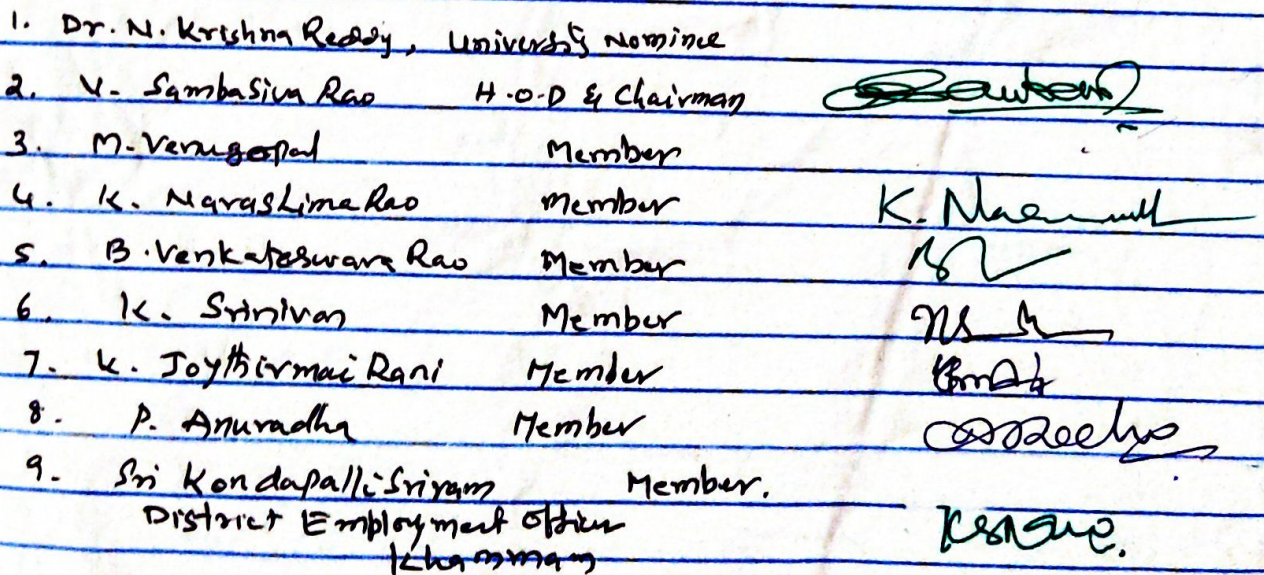 1. Dr. N. Krishna Reddy, University Nominee
2. V. Sambasiva Rao H.O.D & Chairman
3. M. Venugopal Member
4. K. Narashima Rao Member K.
5. B. Venkateswara Rao Member
6. K. Srinivas Member
7. K. Joythirmai Rani Member
8. P. Anuradha Member
9. Sri Kondapalli Sriram Member.
District Employment Officer
Khammam